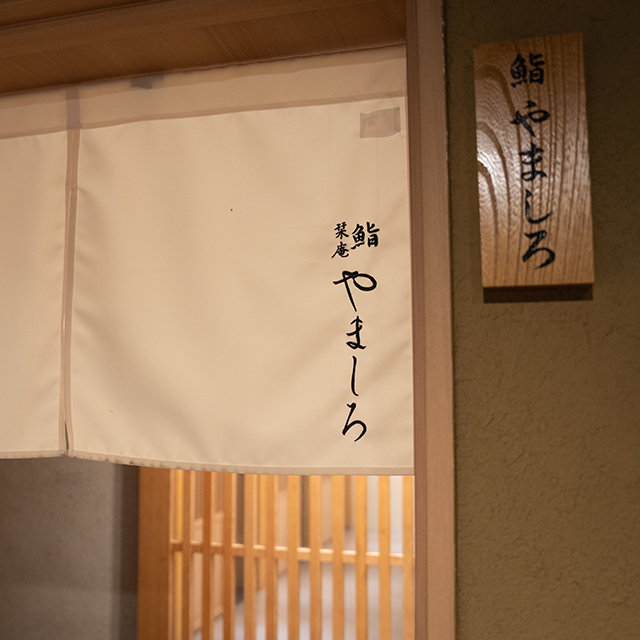 鮨
栞庵
やましろ
鮨 やましろ